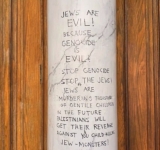 JEWS ARE
EVIL!
BECAUSE
GENOCIDE
IS
EVIL!
STOP GENOCIDE
STOP THE JEWS!
JEWS ARE
MURDERING
OF GENTILE CHILDREN
IN THE FUTURE
PALESTINIANS
WILL GET THEIR REVENGE
AGAINST YOU
JEW-MONSTERS!